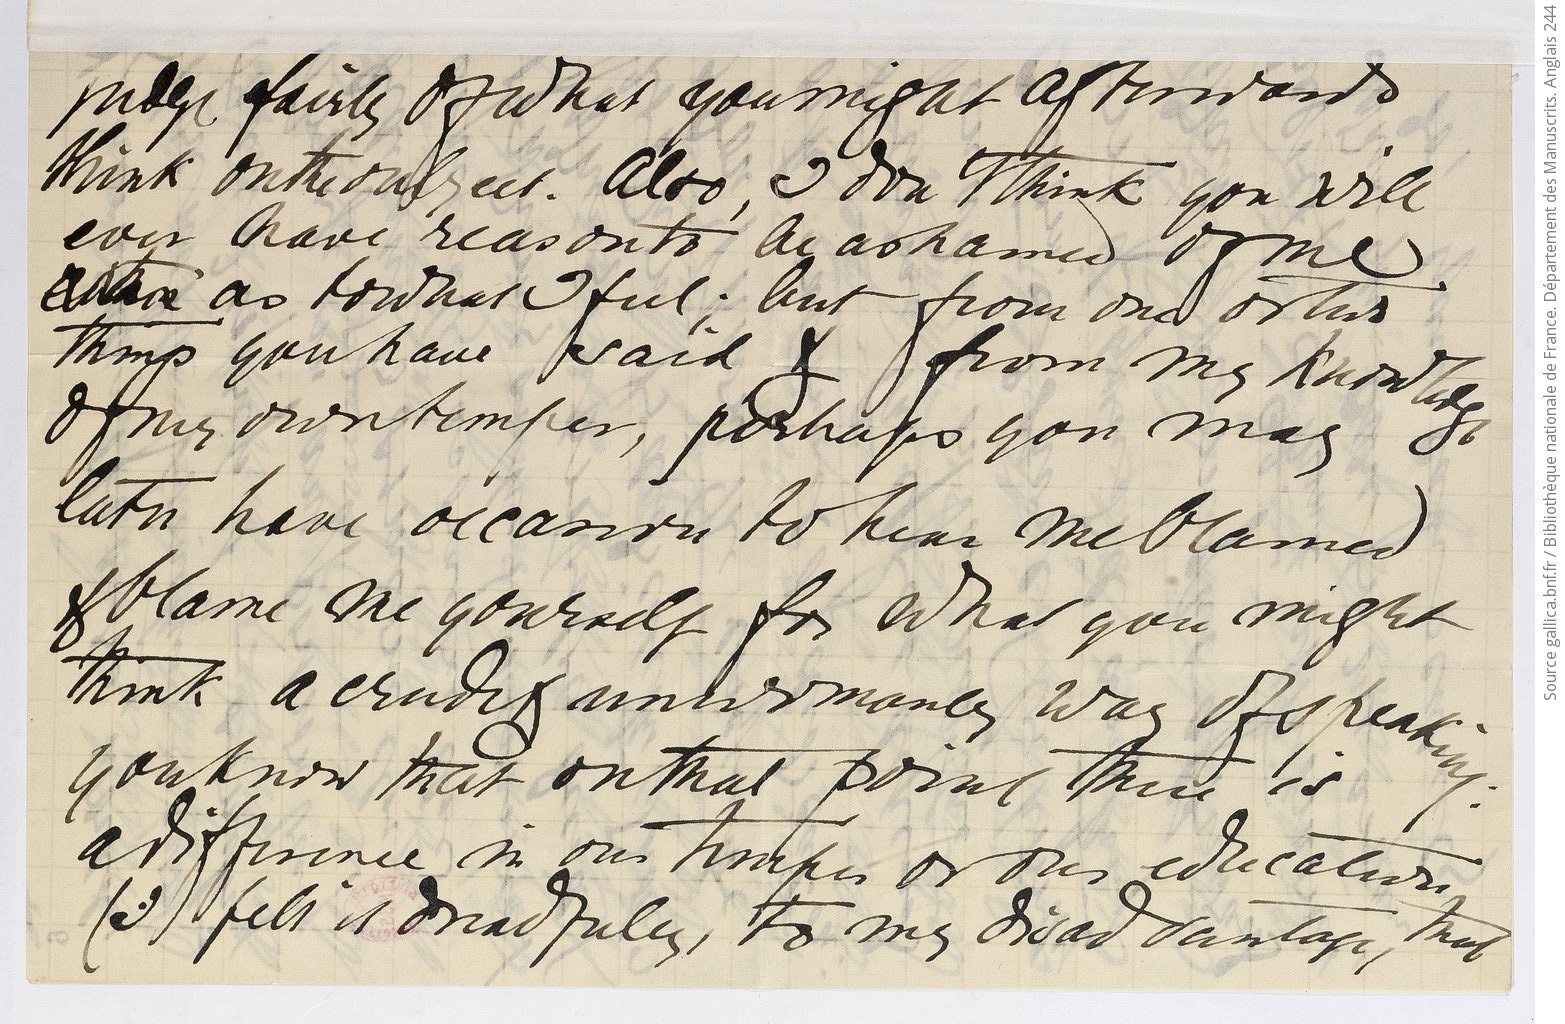 judge fairly of what you might afterwards
think on the subject. Also, I don't think you will
ever have reason to be ashamed of me
as to what I feel; but from one or two
things you have said & from my knowledge
of my own temper, perhaps you may
later have occasion to hear me blamed
& blame me yourself for what you might
think a crude & unwomanly way of speaking:
you know that on that point there is
a difference in our temper or our education
(I felt it dreadfully, to my disadvantage, that
Source gallica.bnf.fr / Bibliothèque nationale de France. Département des Manuscrits. Anglais 244